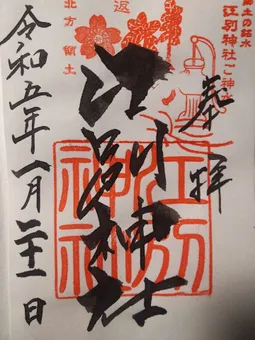 土の銘水
江別神社ご神水
返
北方領土
奉拝
江別神社
江別
神社
令和五年一月二十一日